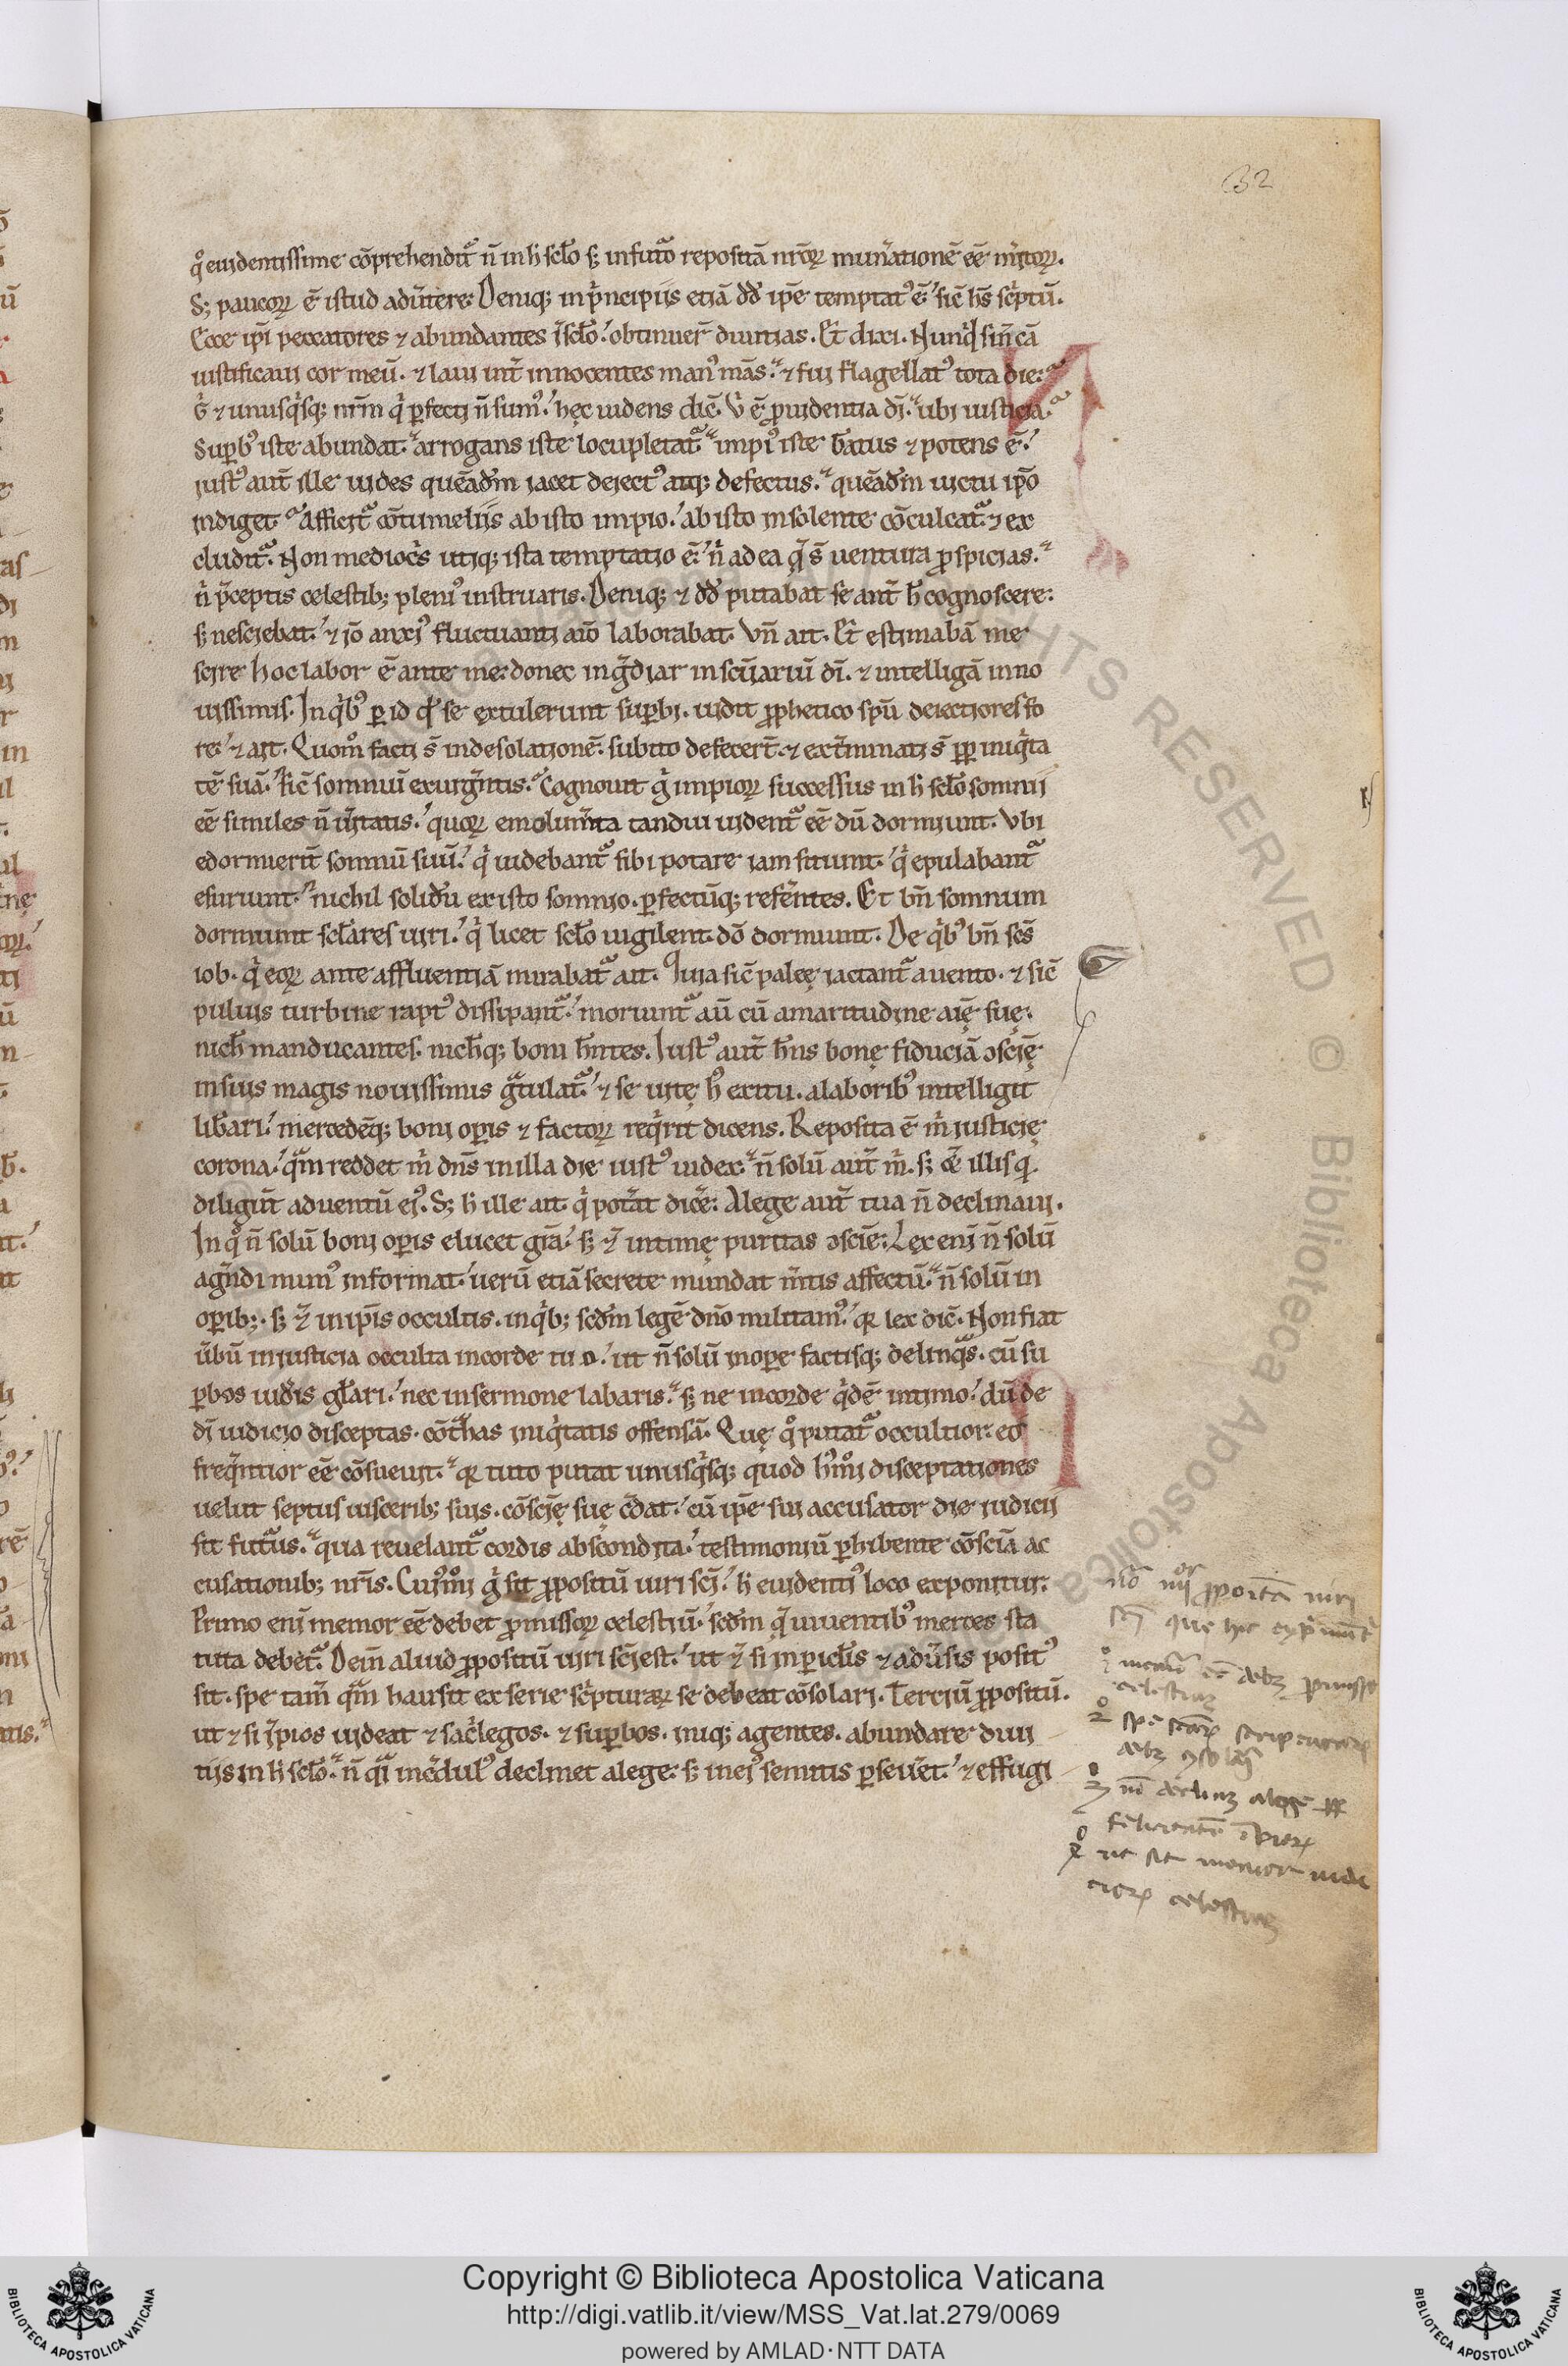 32
qͦ euidentissime cōprehendit᷑ n̄ in h̄ sclo s; in futuᷓro repositā nr̄oꝝ mun̄ationē eē m̄itoꝝ.
S; paucoꝝ ē istud adu̓tere: Deniq; in p̓ncipiis etiā dd̄ ip̄e temptatꝰ ē. sic̄ hēs sc̓ptū.
Ecce ip̄i peccatores ⁊ abundantes ī sclo. obtinuer̄ diuitias. Et dixi. Nunqͥd sin̄ cā
iustificaui cor meū. ⁊ laui int̄ innocentes manꝰ mās. ⁊ fui flagellatꝰ tota die.
g̊ ⁊ unusqͥsq; nr̄m qͥ ꝑfecti n̄ sumꝰ. hęc uidens dic̄. Vͥ ē ꝓuidentia dī. ubi iusticia.
Suꝑbꝰ iste abundat. arrogans iste locupletat᷑. impiꝰ iste b̄atus ⁊ potens ē.
iustꝰ aut̄ ille uides queādm̄ iacet deiectꝰ atq; defectus. queādm̄ uictu ip̄o
indiget. Afficit᷑ cōtumeliis ab isto impio. ab isto insolente cōculcat᷑ ⁊ ex
cludit᷑. Non mediocͥs utiq; ista temptatio ē. n̓ ad ea q̄ s̄ uentura ꝓspicias.
n̓ p̄ceptis celestib; pleniꝰ instruaris. Deniq; ⁊ dd̄ putabat se ant̄ h̄ cognoscere:
s; nesciebat. ⁊ iō anxiꝰ fluctuanti aīo laborabat. Vn̄ ait. Et estimabā me
scire hoc labor ē ante me: donec ingᷓdiar in scūariū dī. ⁊ intelligā in no
uissimis. In qͥbꝰ ꝑ id qd̄ se extulerunt suꝑbi. uidit ꝓphetico spū deiectiores fo
re. ⁊ ait. Quom̊ facti s̄ in desolationē. subito defecert̄. ⁊ ext̓minati s̄ ꝓꝑ iniqͥta
tē suā. Sic̄ somnuī exurg̓ntis. Cognouit g̊ impioꝝ successus in h̄ sclo somnii
eē similes n̄ u̓itatis. quoꝝ emolum̓ta tandiu uident᷑ eē dū dormiunt. Vbi
edormierīt somnū suū. qͥ uidebant᷑ sibi potare iam sitiunt. qͥ epulabant᷑
esuriunt. nichil solidū ex isto somnio. ꝑfectūq; refe̓ntes. Et bn̄ somnum
dormiunt sclares uiri. qͥ licet sclo uigilent. dō dormiunt. De qͥbꝰ bn̄ scs̄
iob. qͥ eoꝝ ante affluentiā mirabat᷑ ait. Quia sic̄ paleę iactant᷑ a uento. ⁊ sic̄
puluis turbine raptꝰ dissipant᷑. moriunt᷑ aū cū amaritudine aīę suę.
nich̄ manducantes. nich̄q; boni h̄ntes. Iustꝰ aut̄ h̄ns bonę fiduciā ɔscīę
in suis magis nouissimis gᷓtulat᷑. ⁊ se uitę hꝰ exitu. a laboribꝰ intelligit
lib̄ari. mercedēq; boni oꝑis ⁊ factoꝝ reqͥrit dicens. Reposita ē m̓ iusticię
corona. qᷓm reddet m̓ dn̄s in illa die iustꝰ iudex. n̄ solū aut̄ m̓. s; ⁊̄ illis qͥ
diligūt aduentū eiꝰ. S; h ille ait. qͥ pot̓at dice̓: A lege aut̄ tua n̄ declinaui.
In qͦ n̄ solū boni oꝑis elucet gīa. s; ⁊̄ intimę puritas ɔscīę: Lex eni n̄ solū
ag̓ndi numꝰ informat. uerū etiā secrete mundat m̄tis affectū. n̄ solū in
oꝑib;. s; ⁊̄ in ip̄is occultis. in qͥb; scdm̄ legē dn̄o militamꝰ. qꝛ lex dic̄. Non fiat
u̓bū iniusticia occulta in corde tuo. ut n̄ solū in oꝑe factisq; delinqᷓs. cū su
ꝑbos uidͥis glari. nec in sermone labaris. s; ne in corde qͥdē intimo. dū de
dī iudicio disceptas. cōtᷓhas iniqͥtatis offensā. Quę qͦ putat᷑ occultior: eo
freq̓ntior eē cōsueuit. qꝛ tuto putat unusqͥsq; quod hꝰm̊i disceptationes
uelut septus uisceribꝫ suis. cōscīę suę c̓dat. cū ip̄e sui accusator die iudicii
sit futᷓus. qua reuelant᷑ cordis abscondita. testimoniū ꝑhibente cōscīa ac
cusationib; nr̄is. Cuiꝰm̊i g̊ sit ꝓpositū uiri scī. h euidentiꝰ loco exponitur.
Primo eni memor eē debet ꝓmissoꝝ celestiū. scdm̄ q̄ uiuentibꝰ merces sta
tuta debet᷑. Dein̄ aliud ꝓpositū uiri scī est. ut ⁊̄ si in ꝑiclis ⁊ adu̓sis positꝰ
sit. spe tam̄ qᷓm hausit ex serie sc̓pturaꝝ se debeat cōsolari. Terciū ꝓpositū.
ut ⁊ si īpios uideat ⁊ sac̓legos. ⁊ suꝑbos. iniq; agentes. abundare diui
tiis in h̄ sclo. n̄ qᷓi inc̓dulꝰ declinet a lege: s; in eiꝰ semitis ꝑseu̓et. ⁊ effugi
nō iiijor ꝓpoita uiri
scī que hic exp̓imūt᷑
memor eē debꝫ ꝓmisso
celestium
2 spe scāꝝ scripturaꝝ
debꝫ ɔsolari
3 nō declinꝫ a lege ꝓꝑ
felicitatē īpioꝝ
4 ut sit memor iudi
cioꝝ celestium
Copyright © Biblioteca Apostolica Vaticana
http://digi.vatlib.it/view/MSS_Vat.lat.279/0069
powered by AMLAD·NTT DATA
BIBLIOTECA APOSTOLICA VATICANA
BIBLIOTECA APOSTOLICA VATICANA